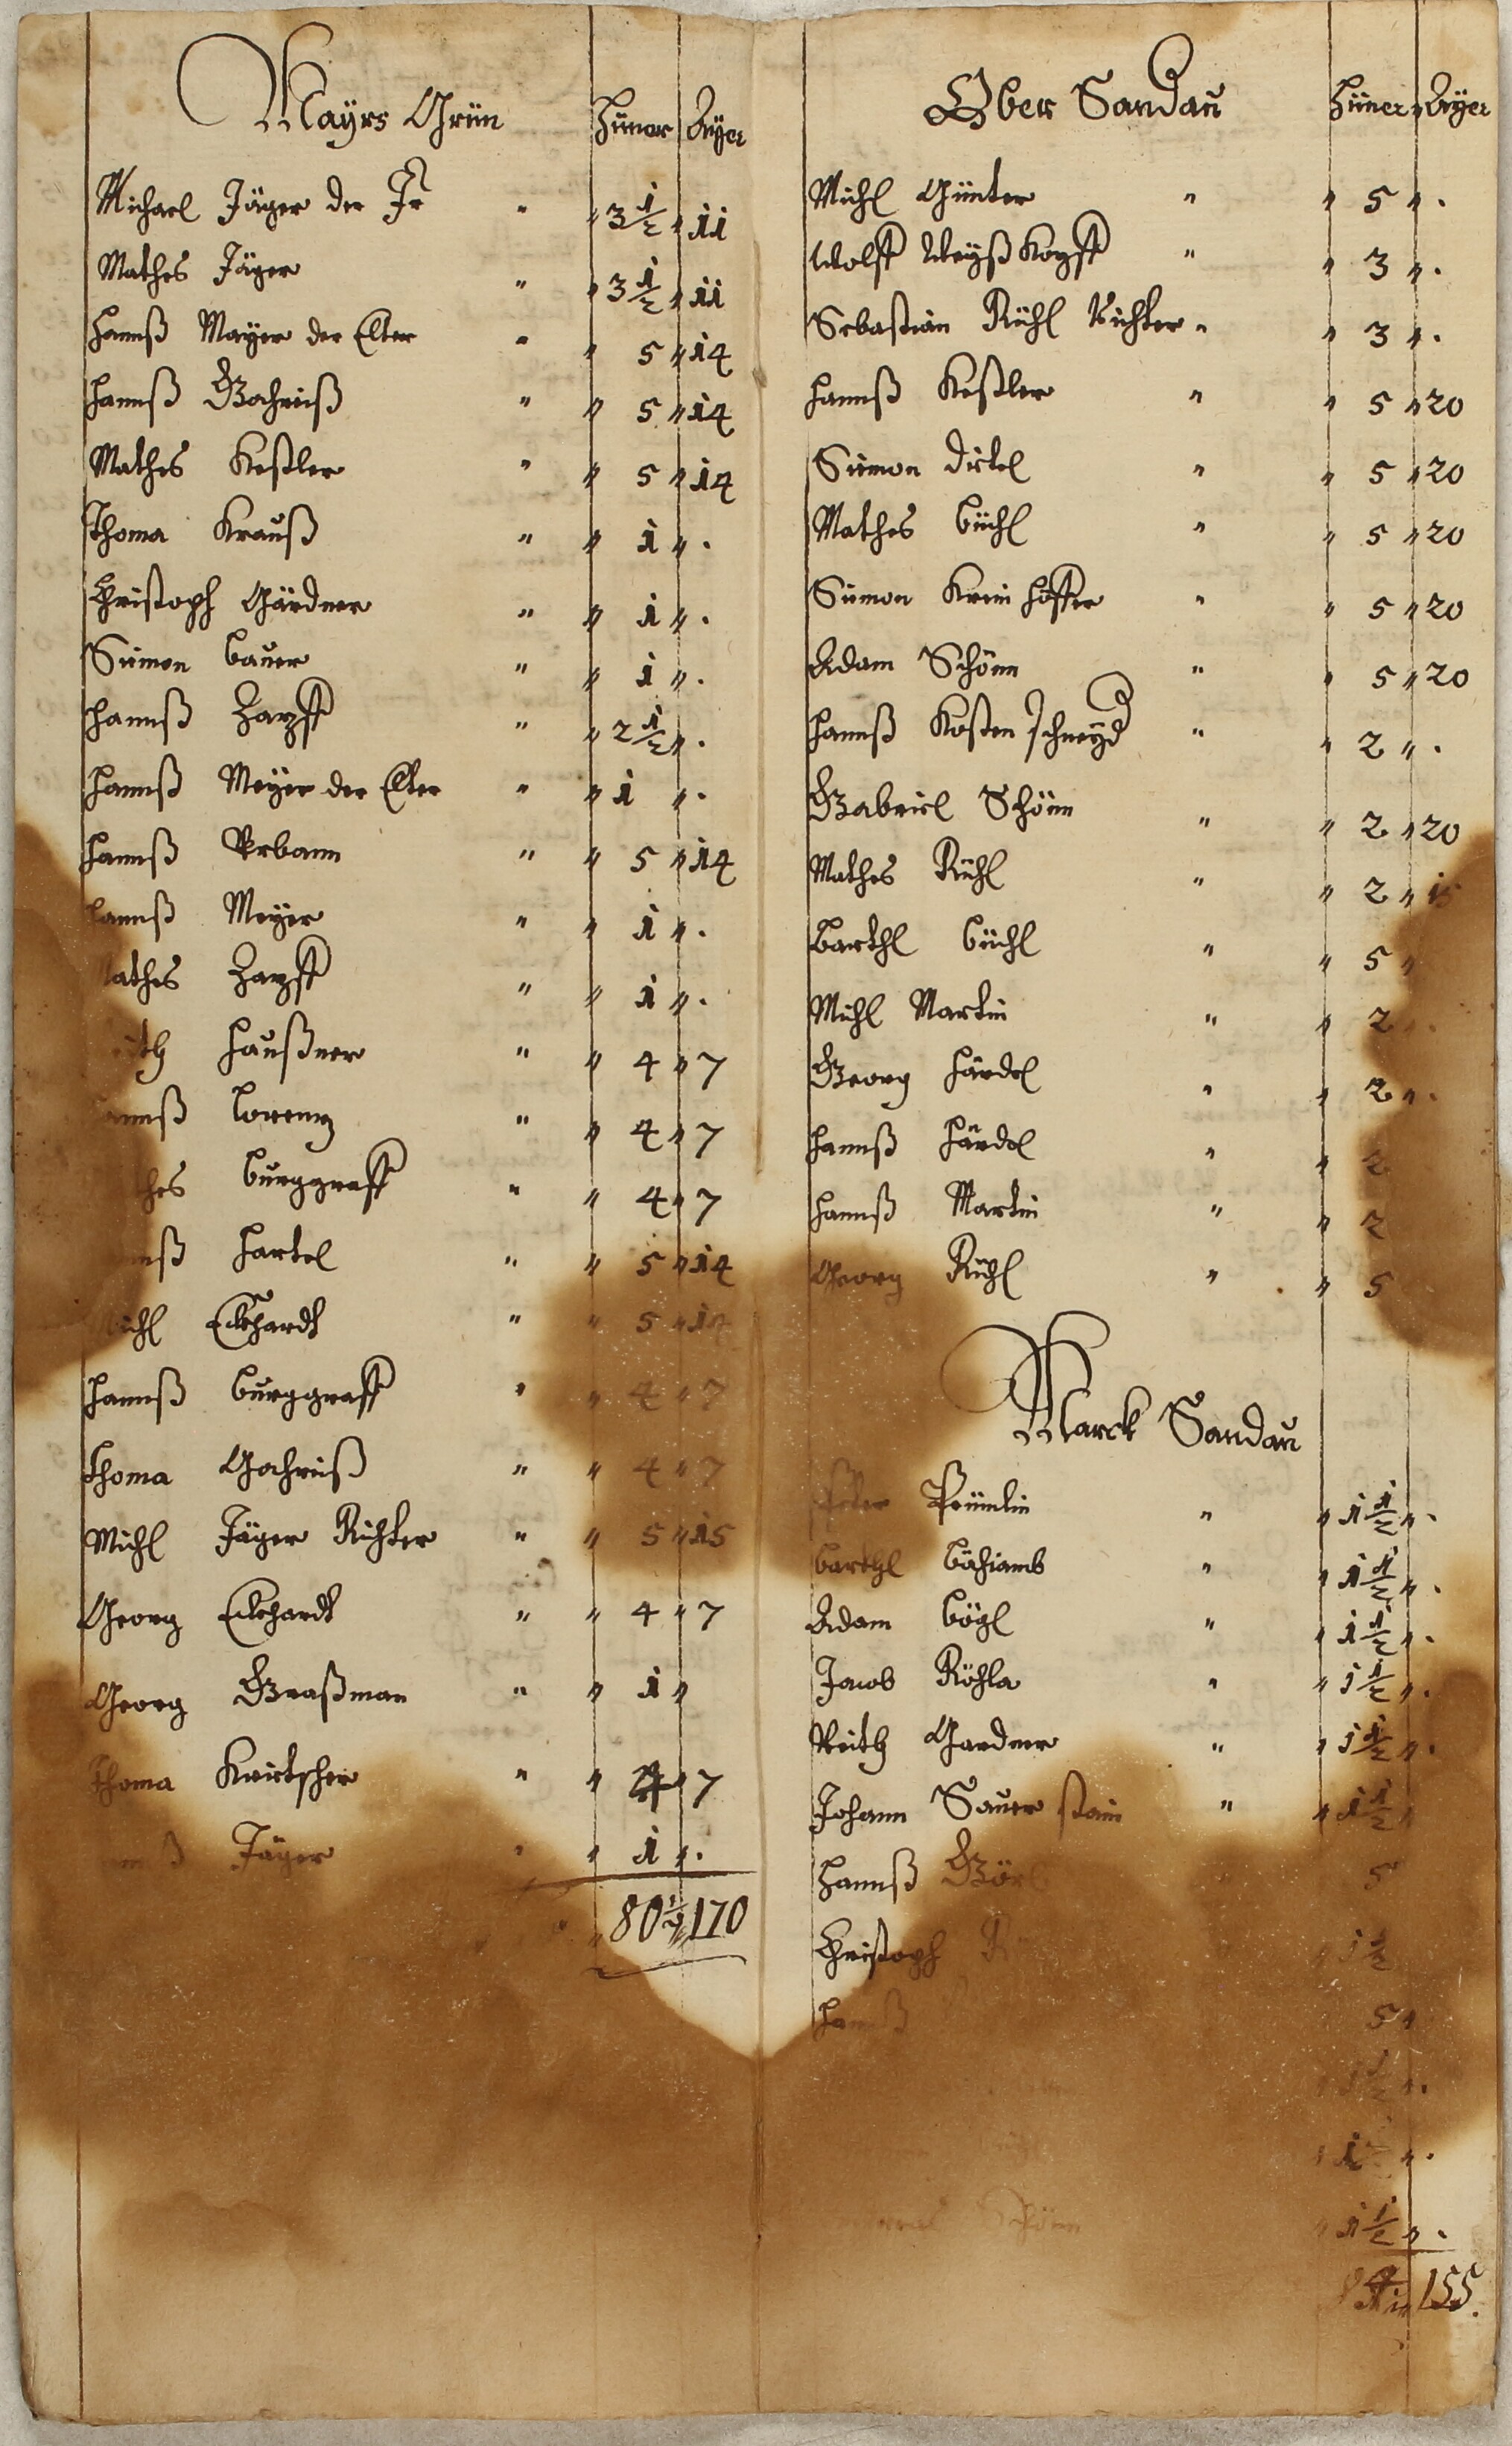 Mayrs Grün Hüner Ayer
Michael Jäger der Jr " " 3 1/2 " 11
Mathes Jäger " " 3 1/2 " 11
Hannß Mayer der Elter " " 5 " 14
Hannß Gahreiß " " 5 " 14
Mathes Keßler " " 5 " 14
Thoma Krauß " " 1 " .
Christoph Gärdner " " 1 " .
Simon Bauer " " 1 " .
Hannß Zapff " " 2 1/2 " .
Hannß Meyer der Elter " " 1 " .
Hannß Vrbann " " 5 " 14
Hannß Meyer " " 1 " .
Mathes Zapff " " 1 " .
Haußner " " 4 " 7
Hannß Lorentz " " 4 " 7
Mathes Burggraff " " 4 " 7
Hannß Hartel " " 5 " 14
Michl Eckhardt " " 5 " 14
Hannß Burggraff " " 4 " 7
Thoma Gahreiß " " 4 " 7
Michl Jäger Richter " " 5 " 15
Georg Eckhardt " " 4 " 7
Georg Graßman " " 1 "
Thoma " " 4 " 7
Hannß Jäger " " 1 " .
" 80 1/2 " 170
Ober Sandau Hüner " Ayer
Michl Günter " " 5 " .
Wolff Weyß Kopff " " 3 " .
Sebastian Rühl Richter " " 3 " .
Hannß Keßler " " 5 " 20
Simon Dietel " " 5 " 20
Mathes Büchl " " 5 " 20
Simon Krein Höffer " " 5 " 20
Adam Schönn " " 5 " 20
Hannß Kosten schneyd " " 2 " .
Gabriel Schönn " " 2 " 20
Mathes Rühl " " 2 " 15
Barthl Büchl " " 5 "
Michl Martin " " 2 " .
Georg Härdel " " 2 " .
Hannß Härdel " " 2
Hannß Martin " " 2
Georg Rühl " " 5
Marck Sandau
Peter Prümlin " " 1 1/2 " .
Barthl " " 1 1/2 " .
Adam Bögl " " 1 1/2 " .
Jacob Röhla " " 1 1/2 " .
Veith Gardner " " 1 1/2 " .
Johann Sauer stain " " 1 1/2 "
Hannß 5
Christoph " 1 1/2
Hannß 5 "
" 1 1/2 " .
" 1 1/2 " .
Schönn " 1 1/2 " .
155.